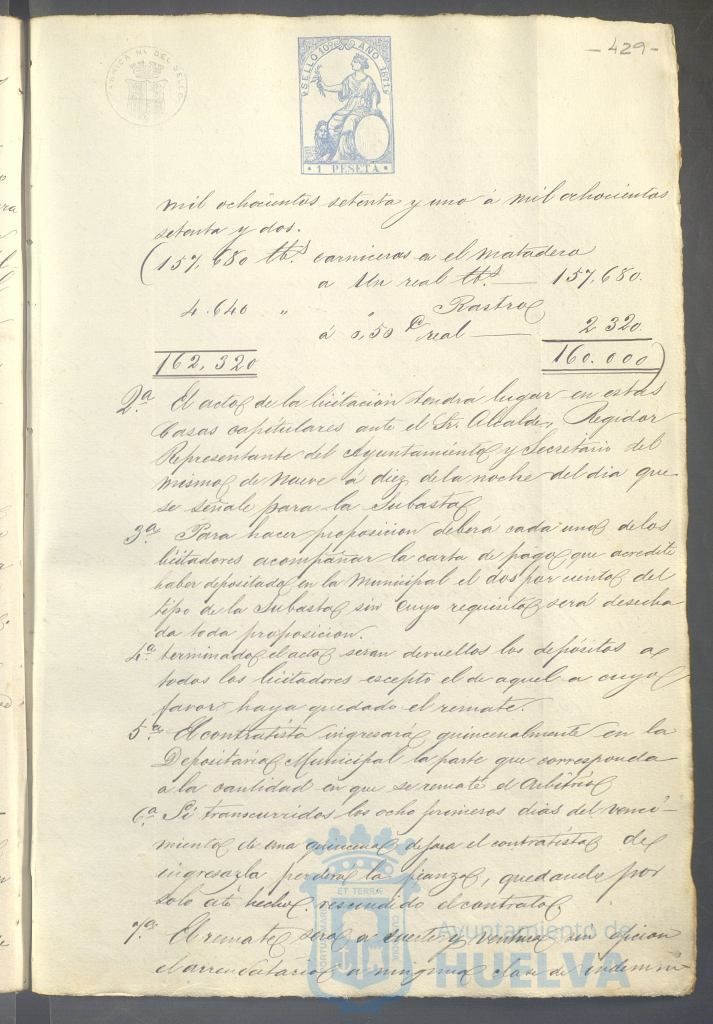 - 429 -
SELLO 10º AÑO 1871
1 PESETA
mil ochocientos setenta y uno á mil ochocientos
setenta y dos.
(157,680 lb.s carniceras en el matadero
a Un real lb.s — 157,680.
4.640 " " Rastro
á 0,50 c real — 2 320.
162,320 160.000)
2.a El acto de la licitación tendrá lugar en estas
Casas capitulares ante el Sr. Alcalde, Regidor
Representante del Ayuntamiento y Secretario del
mismo de nueve á diez de la noche del dia que
se señale para la Subasta
3.a Para hacer proposicion deberá cada uno de los
licitadores acompañar la carta de pago que acredite
haber depositado en la Municipal el dos por ciento del
tipo de la Subasta sin cuyo requisito será desecha
da toda proposicion.
4.a terminado el acto seran devueltos los depósitos a
todos los licitadores escepto el de aquel a cuyo
favor haya quedado el remate.
5.a El contratista ingresará quincenalmente en la
Depositaria Municipal la parte que corresponda
a la cantidad en que se remate el Arbitrio
6.a Si transcurridos los ocho primeros dias del venci-
miento de una quincena dejara el contratista de
ingresarla perderá la fianza, quedando por
solo este hecho rescindido el contrato
7.a El remate será a suerte y ventura sin opcion
el arrendatario a ninguna clase de indemni
ET TERRÆ
Ayuntamiento de
HUELVA